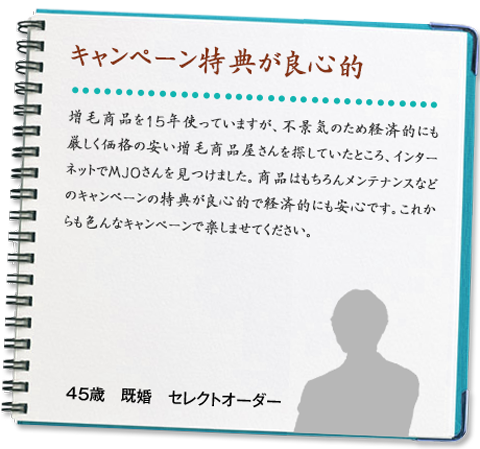 キャンペーン特典が良心的
増毛商品を15年使っていますが、不景気のため経済的にも
厳しく価格の安い増毛商品屋さんを探していたところ、インター
ネットでMJOさんを見つけました。商品はもちろんメンテナンスなど
のキャンペーンの特典が良心的で経済的にも安心です。これか
らも色んなキャンペーンで楽しませてください。
45歳 既婚 セレクトオーダー